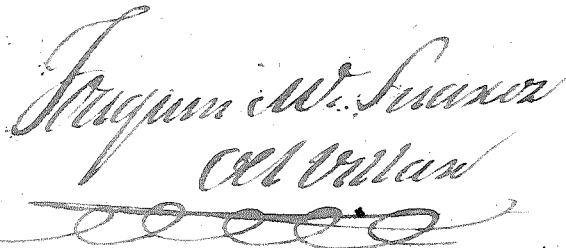 Joaquin M. Suarez
del Villar